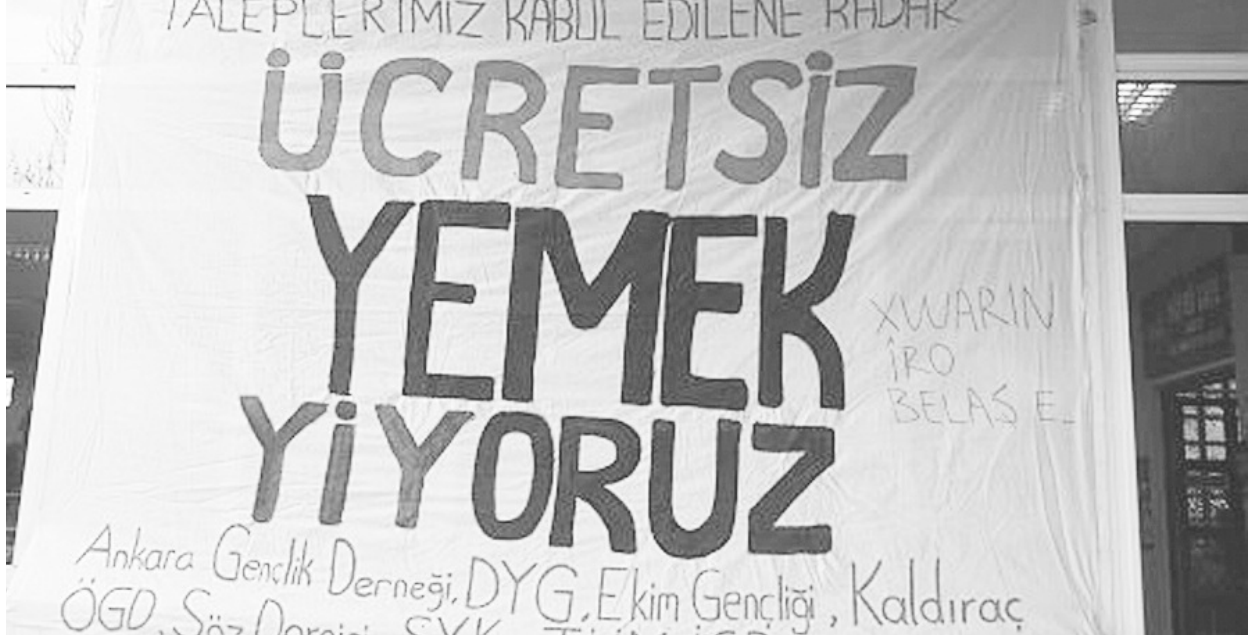 TALEPLERİMİZ KABUL EDİLENE KADAR
ÜCRETSİZ
YEMEK
YİYORUZ
XWARIN
ÎRO
BELAŞ E.
Ankara Gençlik Derneği, DYG, Ekim Gençliği, Kaldıraç
ÖGD, Söz Dergisi